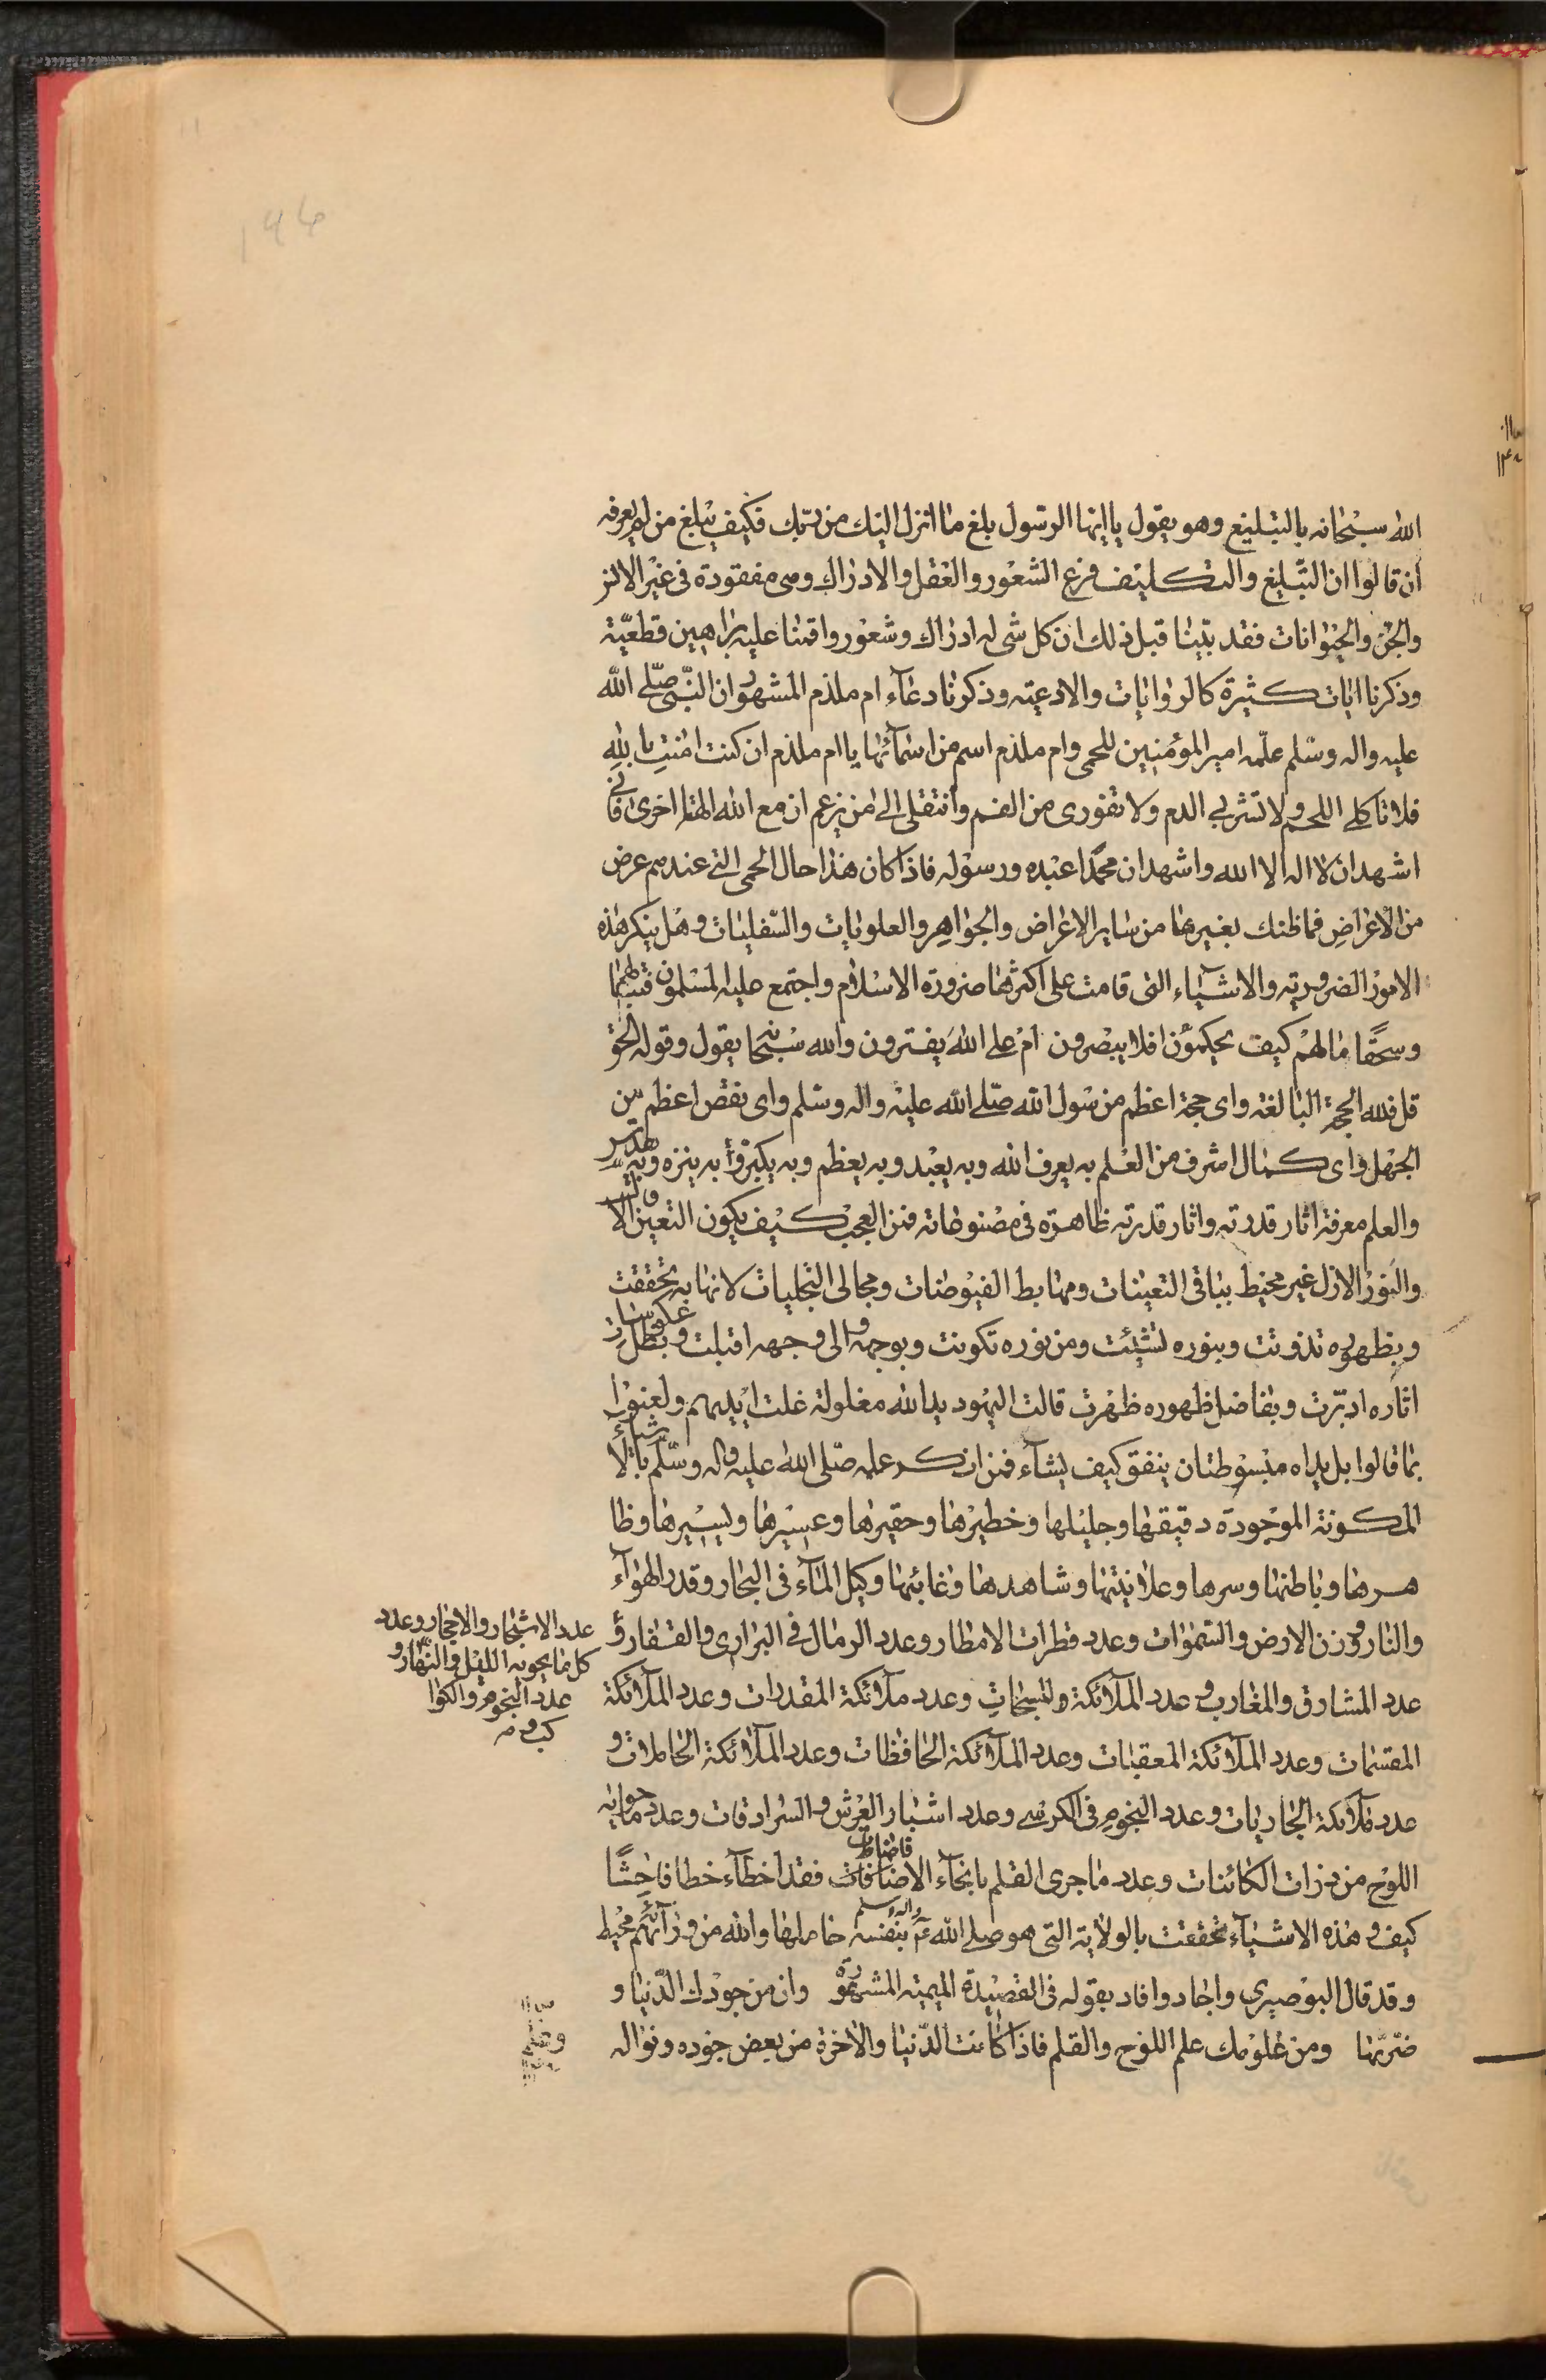 الله سبحانه بالتبليغ وهو يقول يا ايها الرسول بلغ ما انزل اليك من ربك فكيف يبلغ من لم يعرفه
ان قالوا ان التبليغ والتكليف فرع الشعور والعقل والادراك وهى مفقودة فى غير الانس
والجن والحيوانات فقد بينا قبل ذلك ان كل شى له ادراك وشعور واقمنا عليه براهين قطعيّة
وذكرنا ايات كثيرة كالروايات والادعيته وذكرنا دعآء ام ملدم المشهور ان النّبى صلّى الله
عليه واله وسلم علّمه امير المؤمنين للحمى وام ملدم اسم من اسمآئها يا ام ملدم ان كنت امنتِ باللهِ
فلا تاكلى اللحم ولا تشربى الدم ولا تفورى من الفم وانتقلى الى من يزعم ان مع الله الها اخرى فانى
اشهد ان لا اله الا الله واشهد ان محمدا عبده ورسوله فاذا كان هذا حال الحمى التى عندهم عرض
من الاعراضِ فما ظنك بغيرها من ساير الاعراض والجواهر والعلويات والسّفليات وهل ينكر هذه
الامور الضروريته والاشيآء التى قامت على اكثرها ضرورة الاسلام واجتمع عليه المسلمون فتبا لهم
وسحقًا ما لهم كيف يحكمون افلا يبصرون ام على الله يفترون والله سبحانه يقول وقوله الحق
قل فلله الحجة البالغة واى حجة اعظم من رسول الله صلّى الله عليه واله وسلم واى نقص اعظم من
الجهل واى كمال اشرف من العلم به يعرف الله وبه يعبد وبه يعظم وبه يكبر وبه ينزه وبه يقدس
والعلم معرفة اثار قدرته واثار قدرته ظاهرة فى مصنوعاته فمن العجب كيف يكون التعين الاول
والنور الازل غير محيط بباقى التعينات ومهابط الفيوضات ومجالى التجليات لانها به تحققت
وبظهوره تذوتت وبنوره تشيئت ومن نوره تكونت وبوجهه والى وجهه اقبلت وبظل عكوسات
اثاره ادبرت وبفاضل ظهوره ظهرت قالت اليهود يد الله مغلولة غلت ايديهم ولعنوا
بما قالوا بل يداه مبسوطتان ينفق كيف يشآء فمن انكر علمه صلى الله عليه واله وسلّم بالاشيآء
المكونة الموجودة دقيقها وجليلها وخطيرها وحقيرها وعسيرها ويسيرها وظا
هرها وباطنها وسرها وعلانيتها وشاهدها وغائبها وكيل المآء فى البحار وقدر الهوآء
والنار ووزن الارض والسموات وعدد قطرات الامطار وعدد الرمال فى البرارى والقفار و
عدد الاشجار والاحجار وعدد
كل ما يحويه الليل والنهار و
عدد النجوم والكوا
كب و
عدد المشارق والمغارب و عدد الملآئكة والمسبحات وعدد ملآئكة المقدرات وعدد الملآئكة
المقسمات وعدد الملآئكة المعقبات وعدد الملآئكة الحافظات وعدد الملآئكة الحاملات و
عدد ملآئكة الجاريات وعدد النجوم فى الكرسى وعدد اشبار العرش والسرادقات وعدد ما حواه
اللوح من ذرات الكائنات وعدد ما جرى القلم بانحآء الاضافات فقد اخطآء خطا فاحِشًا
كيف و هذه الاشيآء تحققت بالولاية التى هو صلى الله عليه واله وسلم بنفسه حاملها والله من ورآئهم محيط
وقد قال البوصيرى واجاد وافاد بقوله فى القصيدة الميميه المشهورة وان من جودك الدّنيا و
ضرّتها ومن علومك علم اللوح والقلم فاذا كانت الدّنيا والاخرة من بعض جوده ونواله